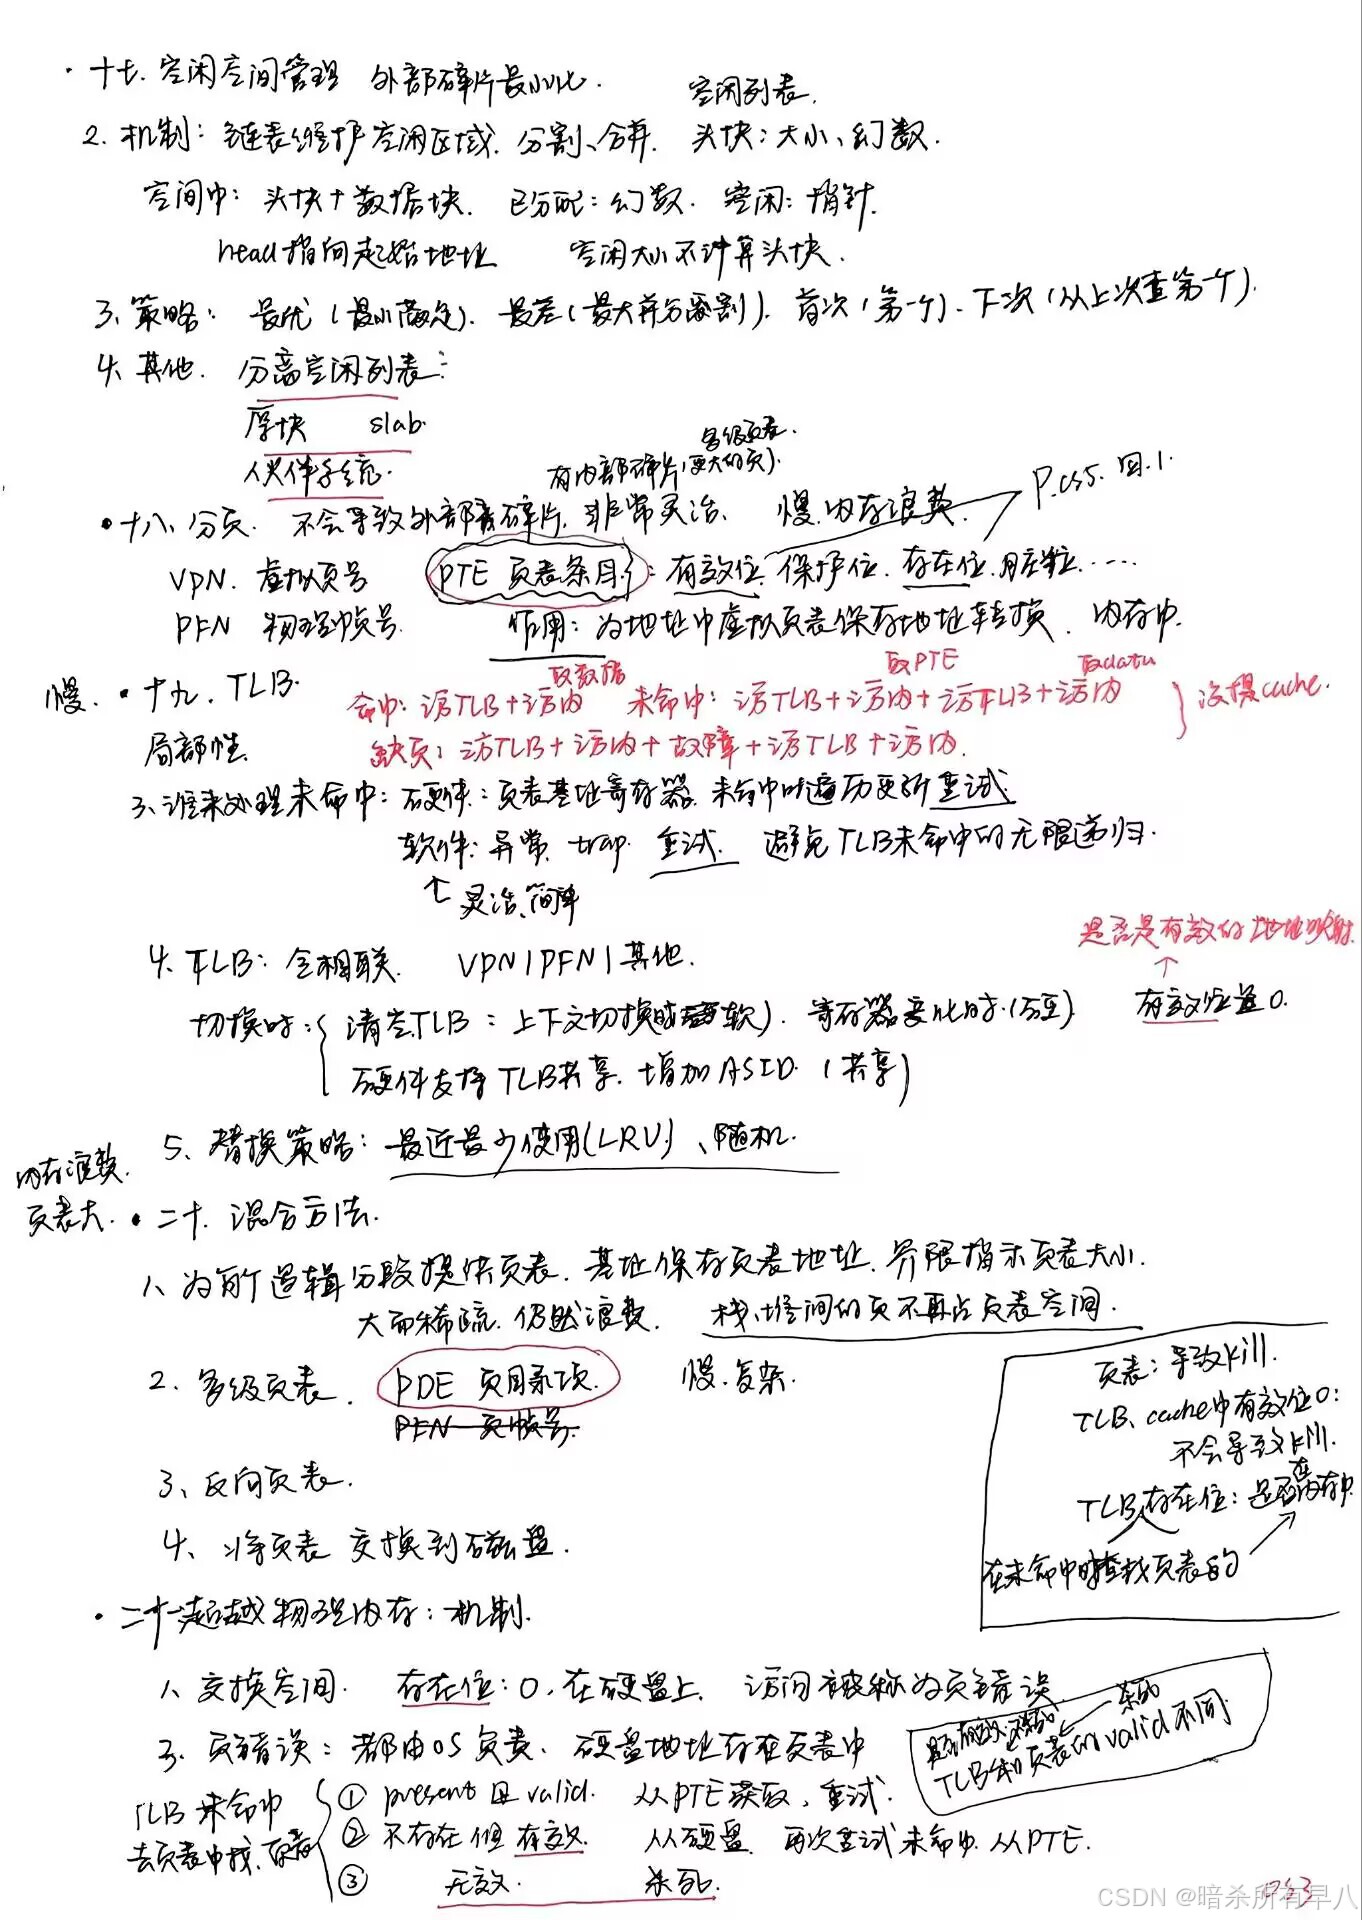 · 十七. 空闲空间管理 外部碎片最小化. 空闲列表.
2. 机制: 链表维护空闲区域. 分割、合并. 头块: 大小、幻数.
空间中: 头块+数据块. 已分配: 幻数. 空闲: 指针.
head指向起始地址 空闲大小不计算头块.
3、策略: 最优(最小满足). 最差(最大并分割). 首次(第一个)、下次(从上次查第一个).
4、其他. 分离空闲列表:
厚块 slab.
伙伴系统.
多级页表.
有内部碎片(更大的页).
P.css. 图.1.
· 十八、分页. 不会导致外部碎片. 非常灵活. 慢.内存浪费.
VPN. 虚拟页号 PTE 页表条目: 有效位. 保护位. 存在位.
PFN 物理帧号. 作用: 为地址中虚拟页表保存地址转换. 内存中.
取数据 取PTE 取data
慢. · 十九. TLB. 命中: 访TLB+访内 未命中: 访TLB+访内+访TLB+访内 } 没提cache.
局部性. 缺页: 访TLB+访内+故障+访TLB+访内.
3、谁来处理未命中: 硬件: 页表基址寄存器. 未命中时遍历更新重试
软件: 异常. trap. 重试. 避免TLB未命中的无限递归.
↑ 灵活、简单
是否是有效的地址映射.
4. TLB: 全相联. VPN|PFN|其他.
切换时: { 清空TLB: 上下文切换时(软). 寄存器变化时.(硬) 有效位置0.
硬件支持TLB共享. 增加ASID. (共享)
5、替换策略: 最近最少使用(LRU)、随机.
内存浪费.
页表大. · 二十. 混合方法.
1、为每个逻辑分段提供页表. 基址保存页表地址. 界限指示页表大小.
大而稀疏. 仍然浪费. 栈、堆间的页不再占页表空间.
2. 多级页表. PDE 页目录项. 慢.复杂.
PFN 页帧号.
3、反向页表.
4、将页表交换到磁盘.
页表: 导致kill.
TLB、cache中有效位0:
不会导致kill.
TLB存在位: 是否在内存中
在未命中时查找页表的
· 二十一超越物理内存: 机制.
1、交换空间. 存在位: 0, 在硬盘上. 访问被称为页错误
3. 页错误: 都由OS负责、硬盘地址存在页表中
杀死
TLB和页表的valid不同.
TLB未命中
去页表中找. { ① present且valid. 从PTE获取, 重试.
② 不存在但有效. 从硬盘. 再次重试未命中. 从PTE.
③ 无效. 杀死.
CSDN @暗杀所有早八